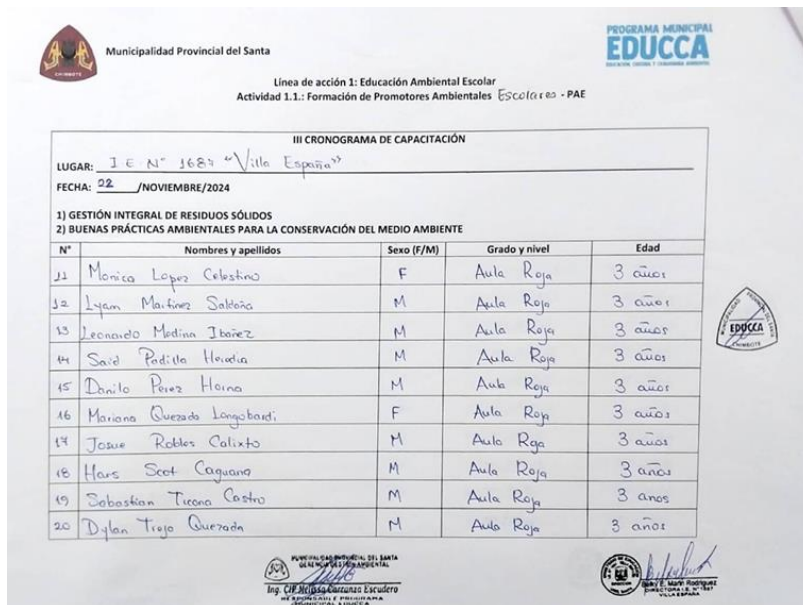 CHIMBOTE
Municipalidad Provincial del Santa
PROGRAMA MUNICIPAL
EDUCCA
Línea de acción 1: Educación Ambiental Escolar
Actividad 1.1.: Formación de Promotores Ambientales Escolares - PAE
III CRONOGRAMA DE CAPACITACIÓN
LUGAR: I E N° 1687 "Villa España"
FECHA: 22 /NOVIEMBRE/2024
1) GESTIÓN INTEGRAL DE RESIDUOS SÓLIDOS
2) BUENAS PRÁCTICAS AMBIENTALES PARA LA CONSERVACIÓN DEL MEDIO AMBIENTE
N° Nombres y apellidos Sexo (F/M) Grado y nivel Edad
11 Monica Lopez Celestino F Aula Roja 3 años
12 Lyam Martinez Saldaña M Aula Roja 3 años
13 Leonardo Medina Ibañez M Aula Roja 3 años
14 Said Padilla Heredia M Aula Roja 3 años
15 Danilo Perez Horna M Aula Roja 3 años
16 Mariana Quezada Longobardi F Aula Roja 3 años
17 Josue Robles Calixto M Aula Roja 3 años
18 Hans Scot Caguana M Aula Roja 3 años
19 Sebastian Ticona Castro M Aula Roja 3 anos
20 Dylan Trejo Quezada M Aula Roja 3 años
EDUCCA
CHIMBOTE
MUNICIPALIDAD PROVINCIAL DEL SANTA
GERENCIA GESTIÓN AMBIENTAL
Ing. CIP Melissa Carranza Escudero
RESPONSABLE PROGRAMA
MUNICIPAL EDUCCA
E. Marin Rodriguez
DIRECTORA I.E. N° 1687
VILLA ESPAÑA